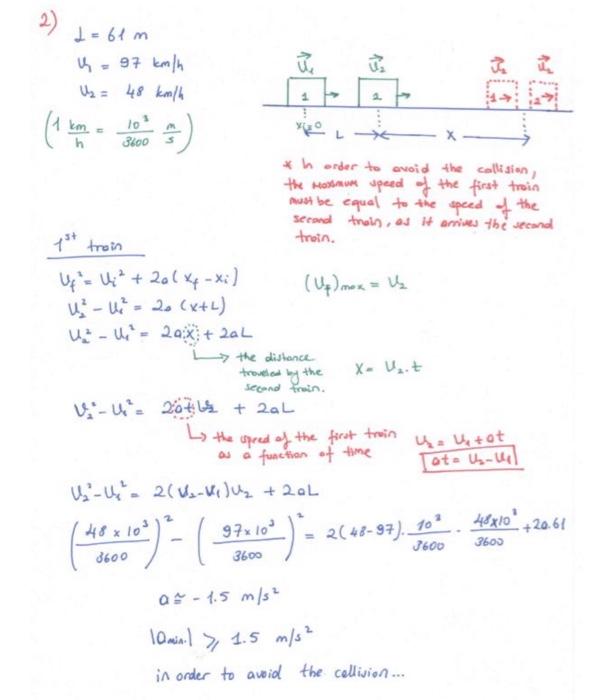 2)
L = 61 m
υ₁ = 97 km/h
υ₂ = 48 km/h
(1 km/h = 10³/3600 m/s)
υ⃗₁ υ⃗₂ υ⃗₂ υ⃗₂
1 2 1 2
xᵢ=0 L X
* In order to avoid the collision,
the maximum speed of the first train
must be equal to the speed of the
second train, as it arrives the second
train.
1st train
υf² = υi² + 2a(xf - xi)
(υf)max = υ₂
υ₂² - υ₁² = 2a (x+L)
υ₂² - υ₁² = 2ax + 2aL
the distance
traveled by the
second train.
x = υ₂.t
υ₂² - υ₁² = 2atυ₂ + 2aL
the speed of the first train
as a function of time
υ₂ = υ₁ + at
at = υ₂ - υ₁
υ₂² - υ₁² = 2(υ₂-υ₁)υ₂ + 2aL
(48 x 10³/3600)² - (97 x 10³/3600)² = 2(48-97). 10³/3600 . 48x10³/3600 + 2a.61
a ≅ - 1.5 m/s²
|amin.| ⩾ 1.5 m/s²
in order to avoid the collision...